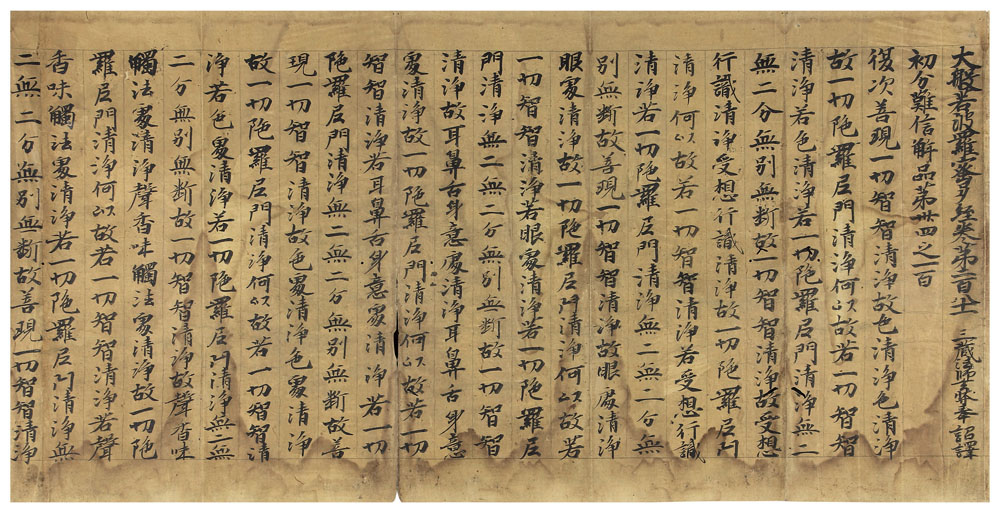 大般若波羅蜜多經卷第二百八十一 三藏法師玄奘奉 詔譯
初分難信解品第卅四之一百
復次善現一切智智清淨故色清淨色清淨
故一切陁羅尼門清淨何以故若一切智智
清淨若色清淨若一切陁羅尼門清淨無二
無二分無別無斷故一切智智清淨故受想
行識清淨受想行識清淨故一切陁羅尼門
清淨何以故若一切智智清淨若受想行識
清淨若一切陁羅尼門清淨無二無二分無
別無斷故善現一切智智清淨故眼處清淨
眼處清淨故一切陁羅尼門清淨何以故若
一切智智清淨若眼處清淨若一切陁羅尼
門清淨無二無二分無別無斷故一切智智
清淨故耳鼻舌身意處清淨耳鼻舌身意
處清淨故一切陁羅尼門清淨何以故若一切
智智清淨若耳鼻舌身意處清淨若一切
陁羅尼門清淨無二無二分無別無斷故善
現一切智智清淨故色處清淨色處清淨
故一切陁羅尼門清淨何以故若一切智智清
淨若色處清淨若一切陁羅尼門清淨無二無
二分無別無斷故一切智智清淨故聲香味
觸法處清淨聲香味觸法處清淨故一切陁
羅尼門清淨何以故若一切智智清淨若聲
香味觸法處清淨若一切陁羅尼門清淨無
二無二分無別無斷故善現一切智智清淨